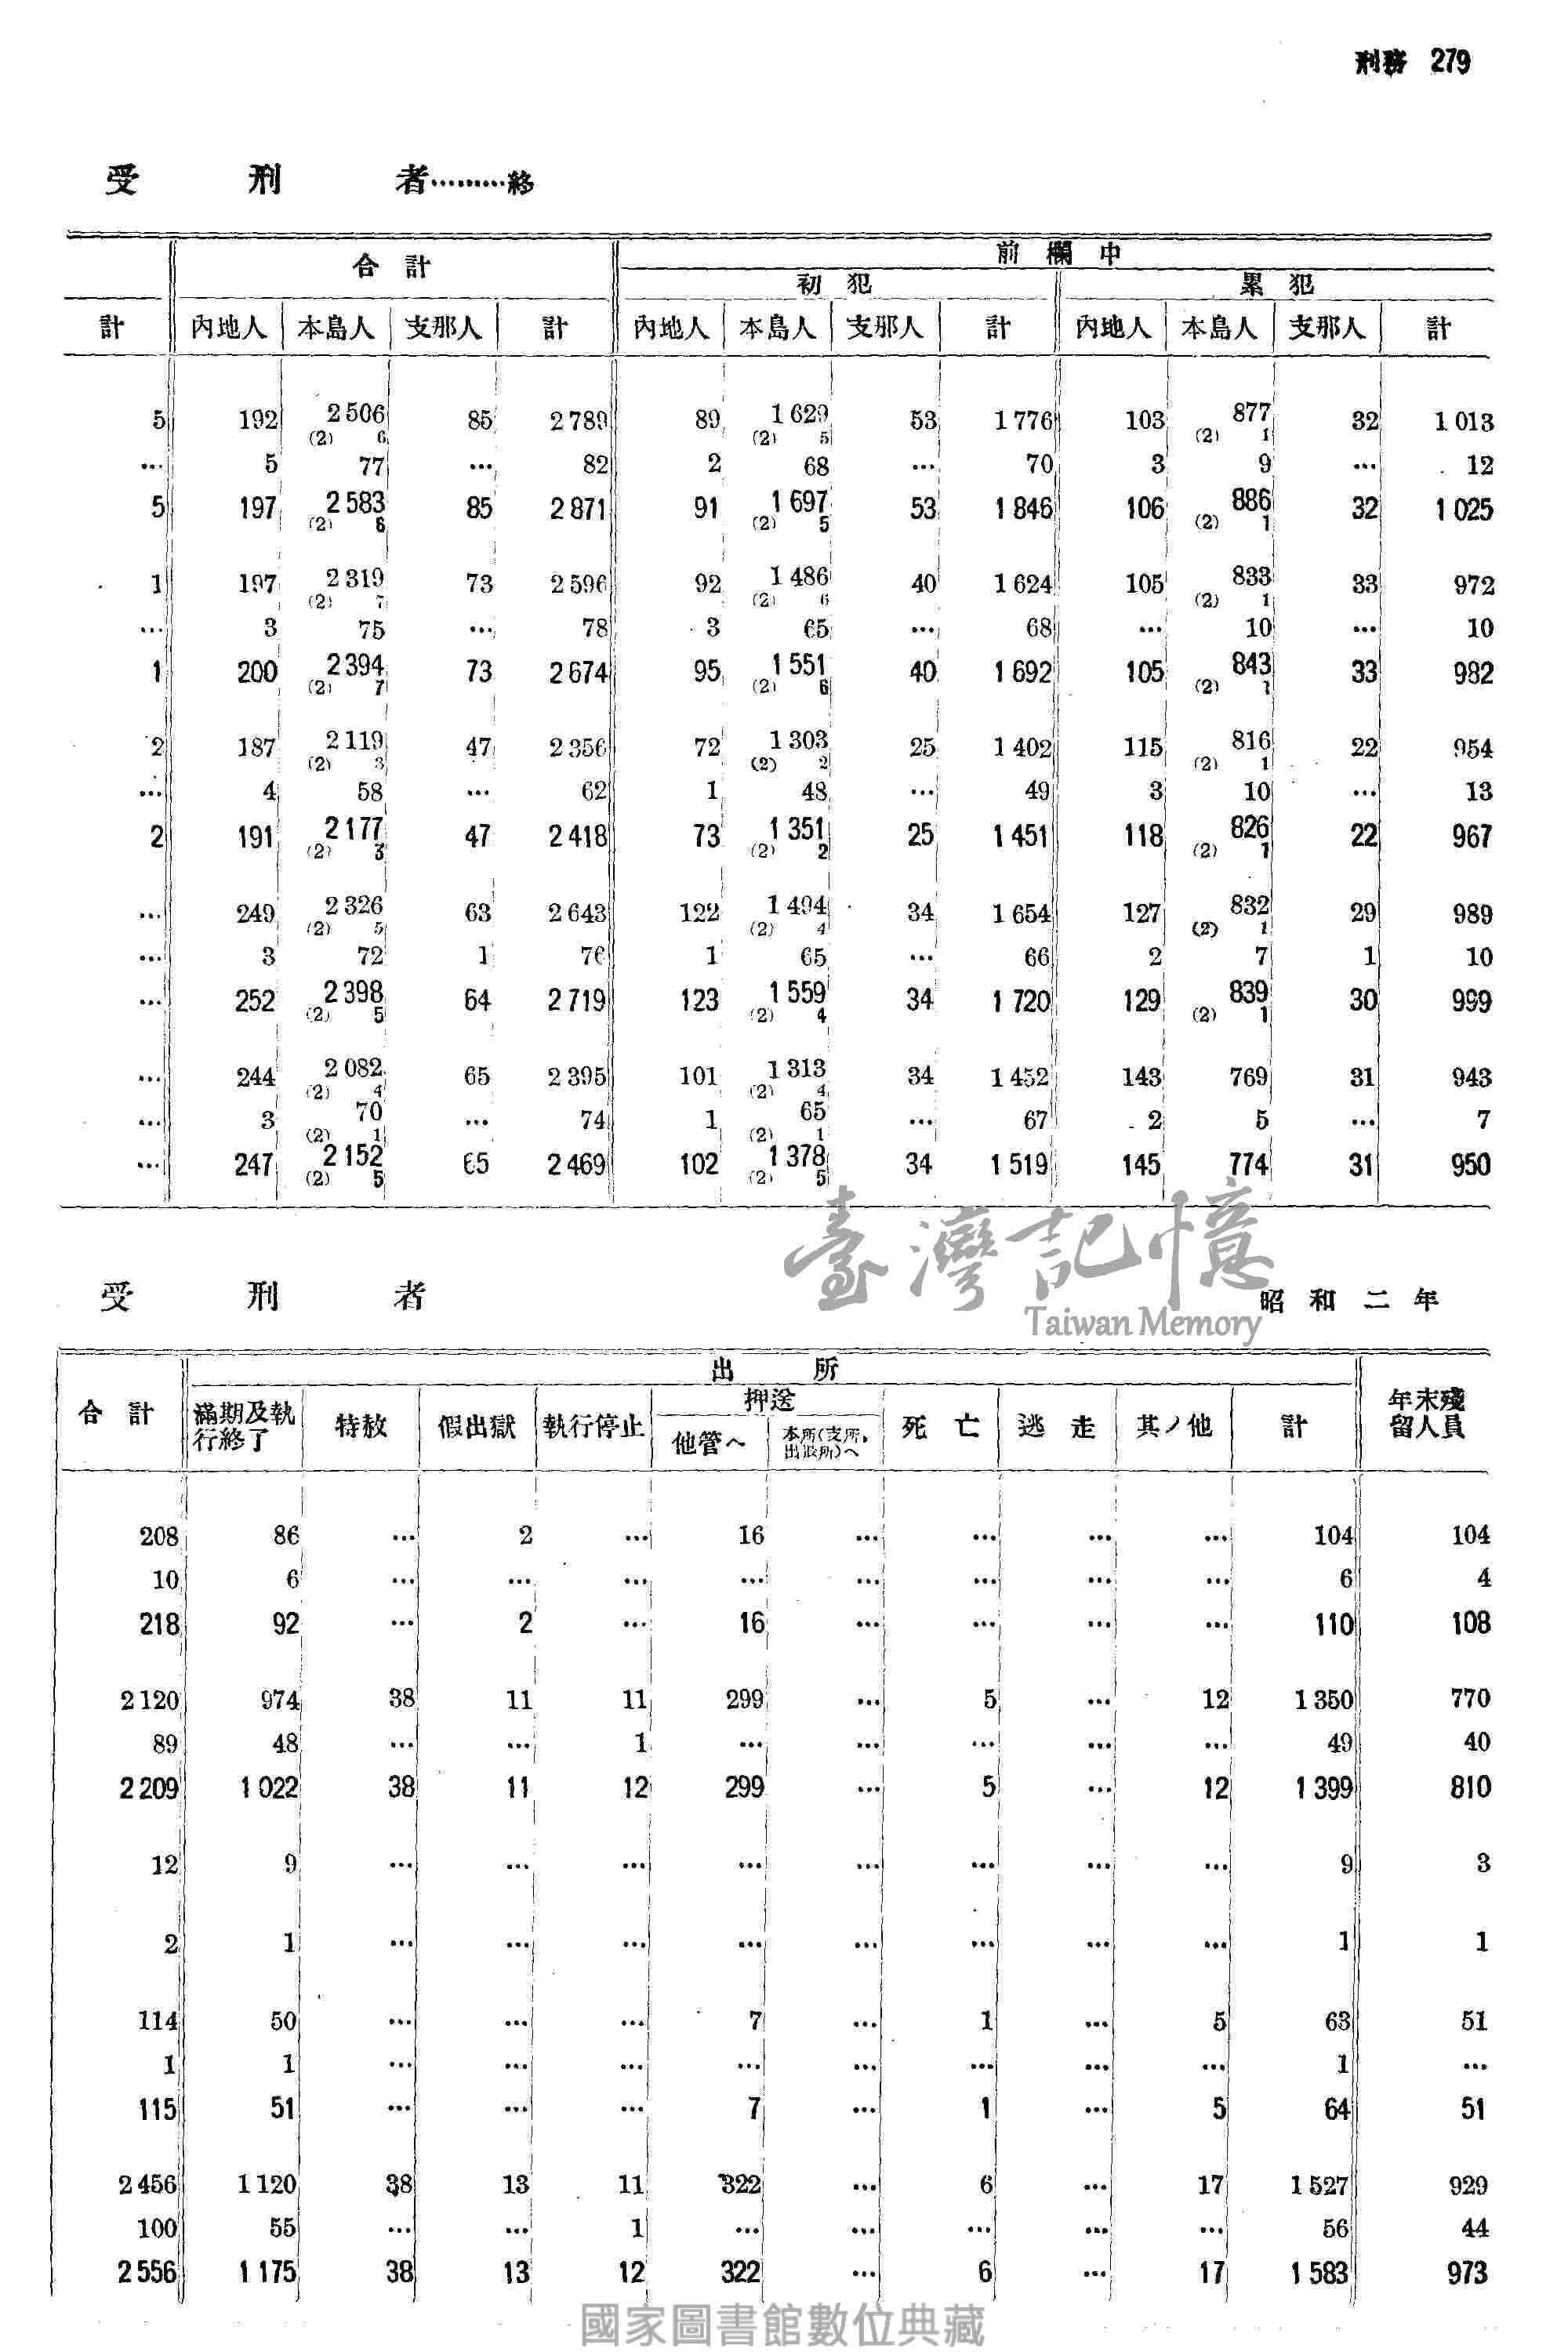 刑務 279
受刑者………終
合計 前欄中
初犯 累犯
計 內地人 本島人 支那人 計 內地人 本島人 支那人 計 內地人 本島人 支那人 計
5 192 2 506 85 2 789 89 1 629 53 1 776 103 877 32 1 013
(2) 6 (2) 5 (2) 1
… 5 77 … 82 2 68 … 70 3 9 … 12
5 197 2 583 85 2 871 91 1 697 53 1 846 106 886 32 1 025
(2) 6 (2) 5 (2) 1
1 197 2 319 73 2 596 92 1 486 40 1 624 105 833 33 972
(2) 7 (2) 6 (2) 1
… 3 75 … 78 3 65 … 68 … 10 … 10
1 200 2 394 73 2 674 95 1 551 40 1 692 105 843 33 982
(2) 7 (2) 6 (2) 1
2 187 2 119 47 2 356 72 1 303 25 1 402 115 816 22 954
(2) 3 (2) 2 (2) 1
… 4 58 … 62 1 48 … 49 3 10 … 13
2 191 2 177 47 2 418 73 1 351 25 1 451 118 826 22 967
(2) 3 (2) 2 (2) 1
… 249 2 326 63 2 643 122 1 494 34 1 654 127 832 29 989
(2) 5 (2) 4 (2) 1
… 3 72 1 76 1 65 … 66 2 7 1 10
… 252 2 398 64 2 719 123 1 559 34 1 720 129 839 30 999
(2) 5 (2) 4 (2) 1
… 244 2 082 65 2 395 101 1 313 34 1 452 143 769 31 943
(2) 4 (2) 4
… 3 70 … 74 1 65 … 67 2 5 … 7
(2) 1 (2) 1
… 247 2 152 65 2 469 102 1 378 34 1 519 145 774 31 950
(2) 5 (2) 5
臺灣記憶
Taiwan Memory
受刑者 昭和二年
出所
合計 滿期及執行終了 特赦 假出獄 執行停止 押送 死亡 逃走 其ノ他 計 年末殘留人員
他管へ 本所(支所、出張所)へ
208 86 … 2 … 16 … … … … 104 104
10 6 … … … … … … … … 6 4
218 92 … 2 … 16 … … … … 110 108
2 120 974 38 11 11 299 … 5 … 12 1 350 770
89 48 … … 1 … … … … … 49 40
2 209 1 022 38 11 12 299 … 5 … 12 1 399 810
12 9 … … … … … … … … 9 3
2 1 … … … … … … … … 1 1
114 50 … … … 7 … 1 … 5 63 51
1 1 … … … … … … … … 1 …
115 51 … … … 7 … 1 … 5 64 51
2 456 1 120 38 13 11 322 … 6 … 17 1 527 929
100 55 … … 1 … … … … … 56 44
2 556 1 175 38 13 12 322 … 6 … 17 1 583 973
國家圖書館數位典藏